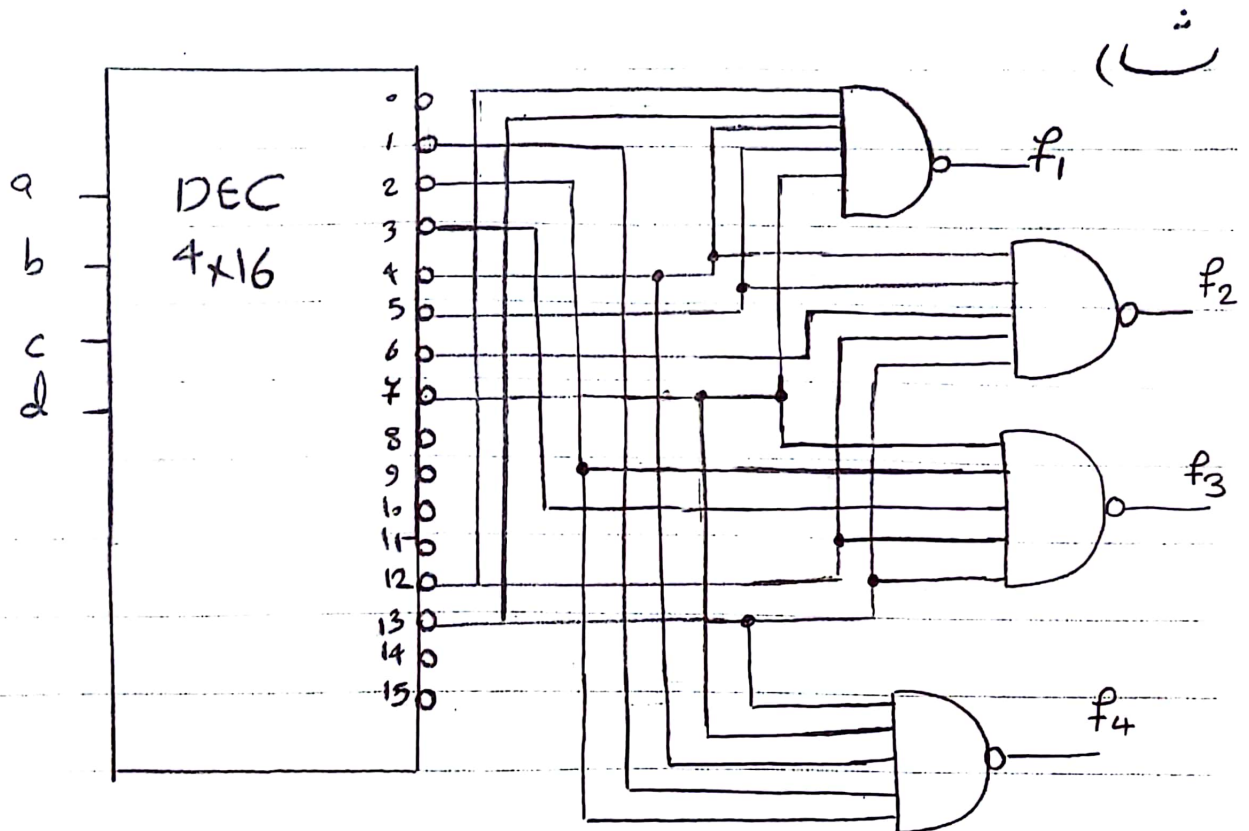 ث)
a
b
c
d
DEC
4x16
0
1
2
3
4
5
6
7
8
9
10
11
12
13
14
15
f1
f2
f3
f4